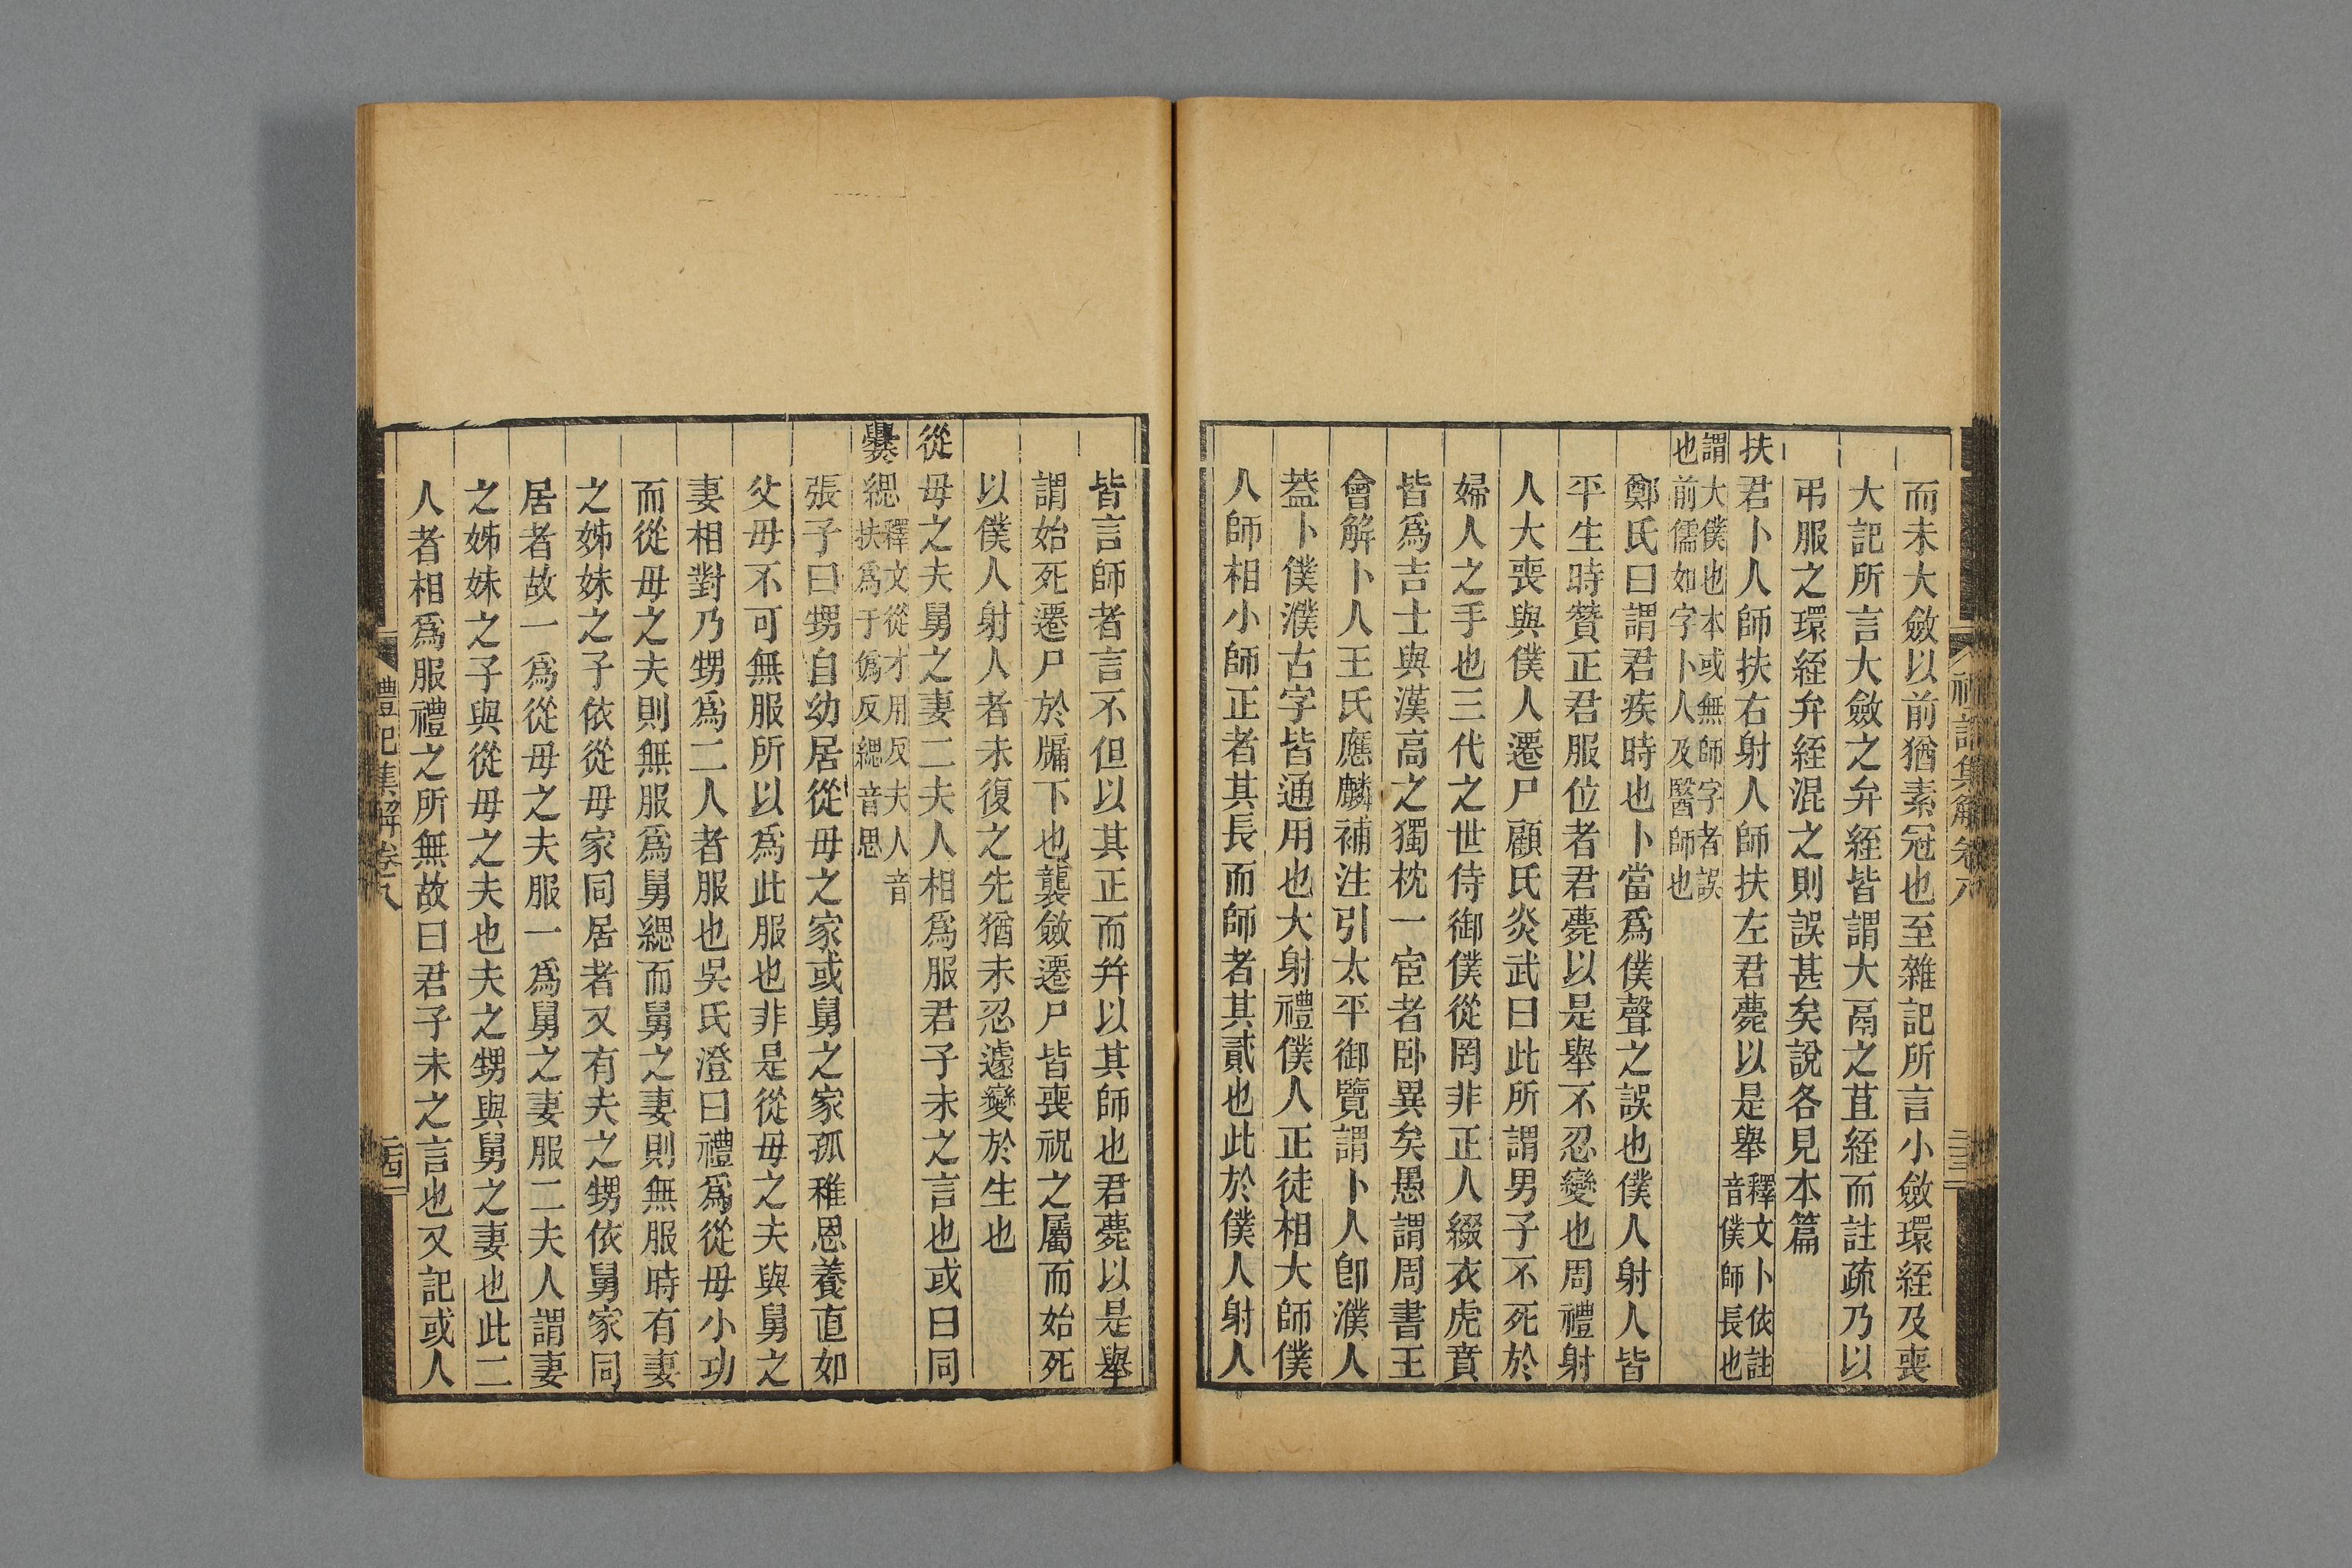 而未大斂以前猶素冠也至雜記所言小斂環絰及喪
大記所言大斂之弁絰皆謂大鬲之苴絰而註疏乃以
弔服之環絰弁絰混之則誤甚矣說各見本篇
扶君卜人師扶右射人師扶左君薨以是舉釋文卜依註
音僕師長也
謂大僕也本或無師字者誤
也前儒如字卜人及醫師也
鄭氏曰謂君疾時也卜當爲僕聲之誤也僕人射人皆
平生時贊正君服位者君薨以是舉不忍變也周禮射
人大喪與僕人遷尸顧氏炎武曰此所謂男子不死於
婦人之手也三代之世侍御僕從罔非正人綴衣虎賁
皆爲吉士與漢高之獨枕一宦者卧異矣愚謂周書王
會解卜人王氏應麟補注引太平御覽謂卜人卽濮人
葢卜僕濮古字皆通用也大射禮僕人正徒相大師僕
人師相小師正者其長而師者其貳也此於僕人射人
禮記集解卷八
皆言師者言不但以其正而幷以其師也君薨以是舉
謂始死遷尸於牖下也襲斂遷尸皆喪祝之屬而始死
以僕人射人者未復之先猶未忍遽變於生也
從母之夫舅之妻二夫人相爲服君子未之言也或曰同
爨緦釋文從才用反夫人音
扶爲于僞反緦音思
張子曰甥自幼居從母之家或舅之家孤稚恩養直如
父母不可無服所以爲此服也非是從母之夫與舅之
妻相對乃甥爲二人者服也吳氏澄曰禮爲從母小功
而從母之夫則無服爲舅緦而舅之妻則無服時有妻
之姊妹之子依從母家同居者又有夫之甥依舅家同
居者故一爲從母之夫服一爲舅之妻服二夫人謂妻
之姊妹之子與從母之夫也夫之甥與舅之妻也此二
人者相爲服禮之所無故曰君子未之言也又記或人
禮記集解卷八